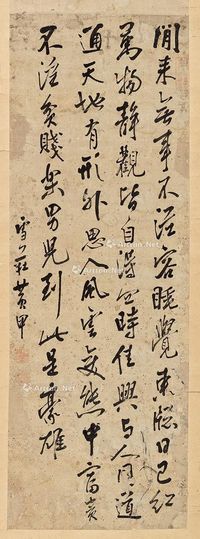 閒来無事不從容睡覺東牎日已紅
萬物靜觀皆自得四時佳興与人同道
通天地有形外思入風雲變態中富貴
不淫貧賤樂男児到此是豪雄
雪蓑黄甲